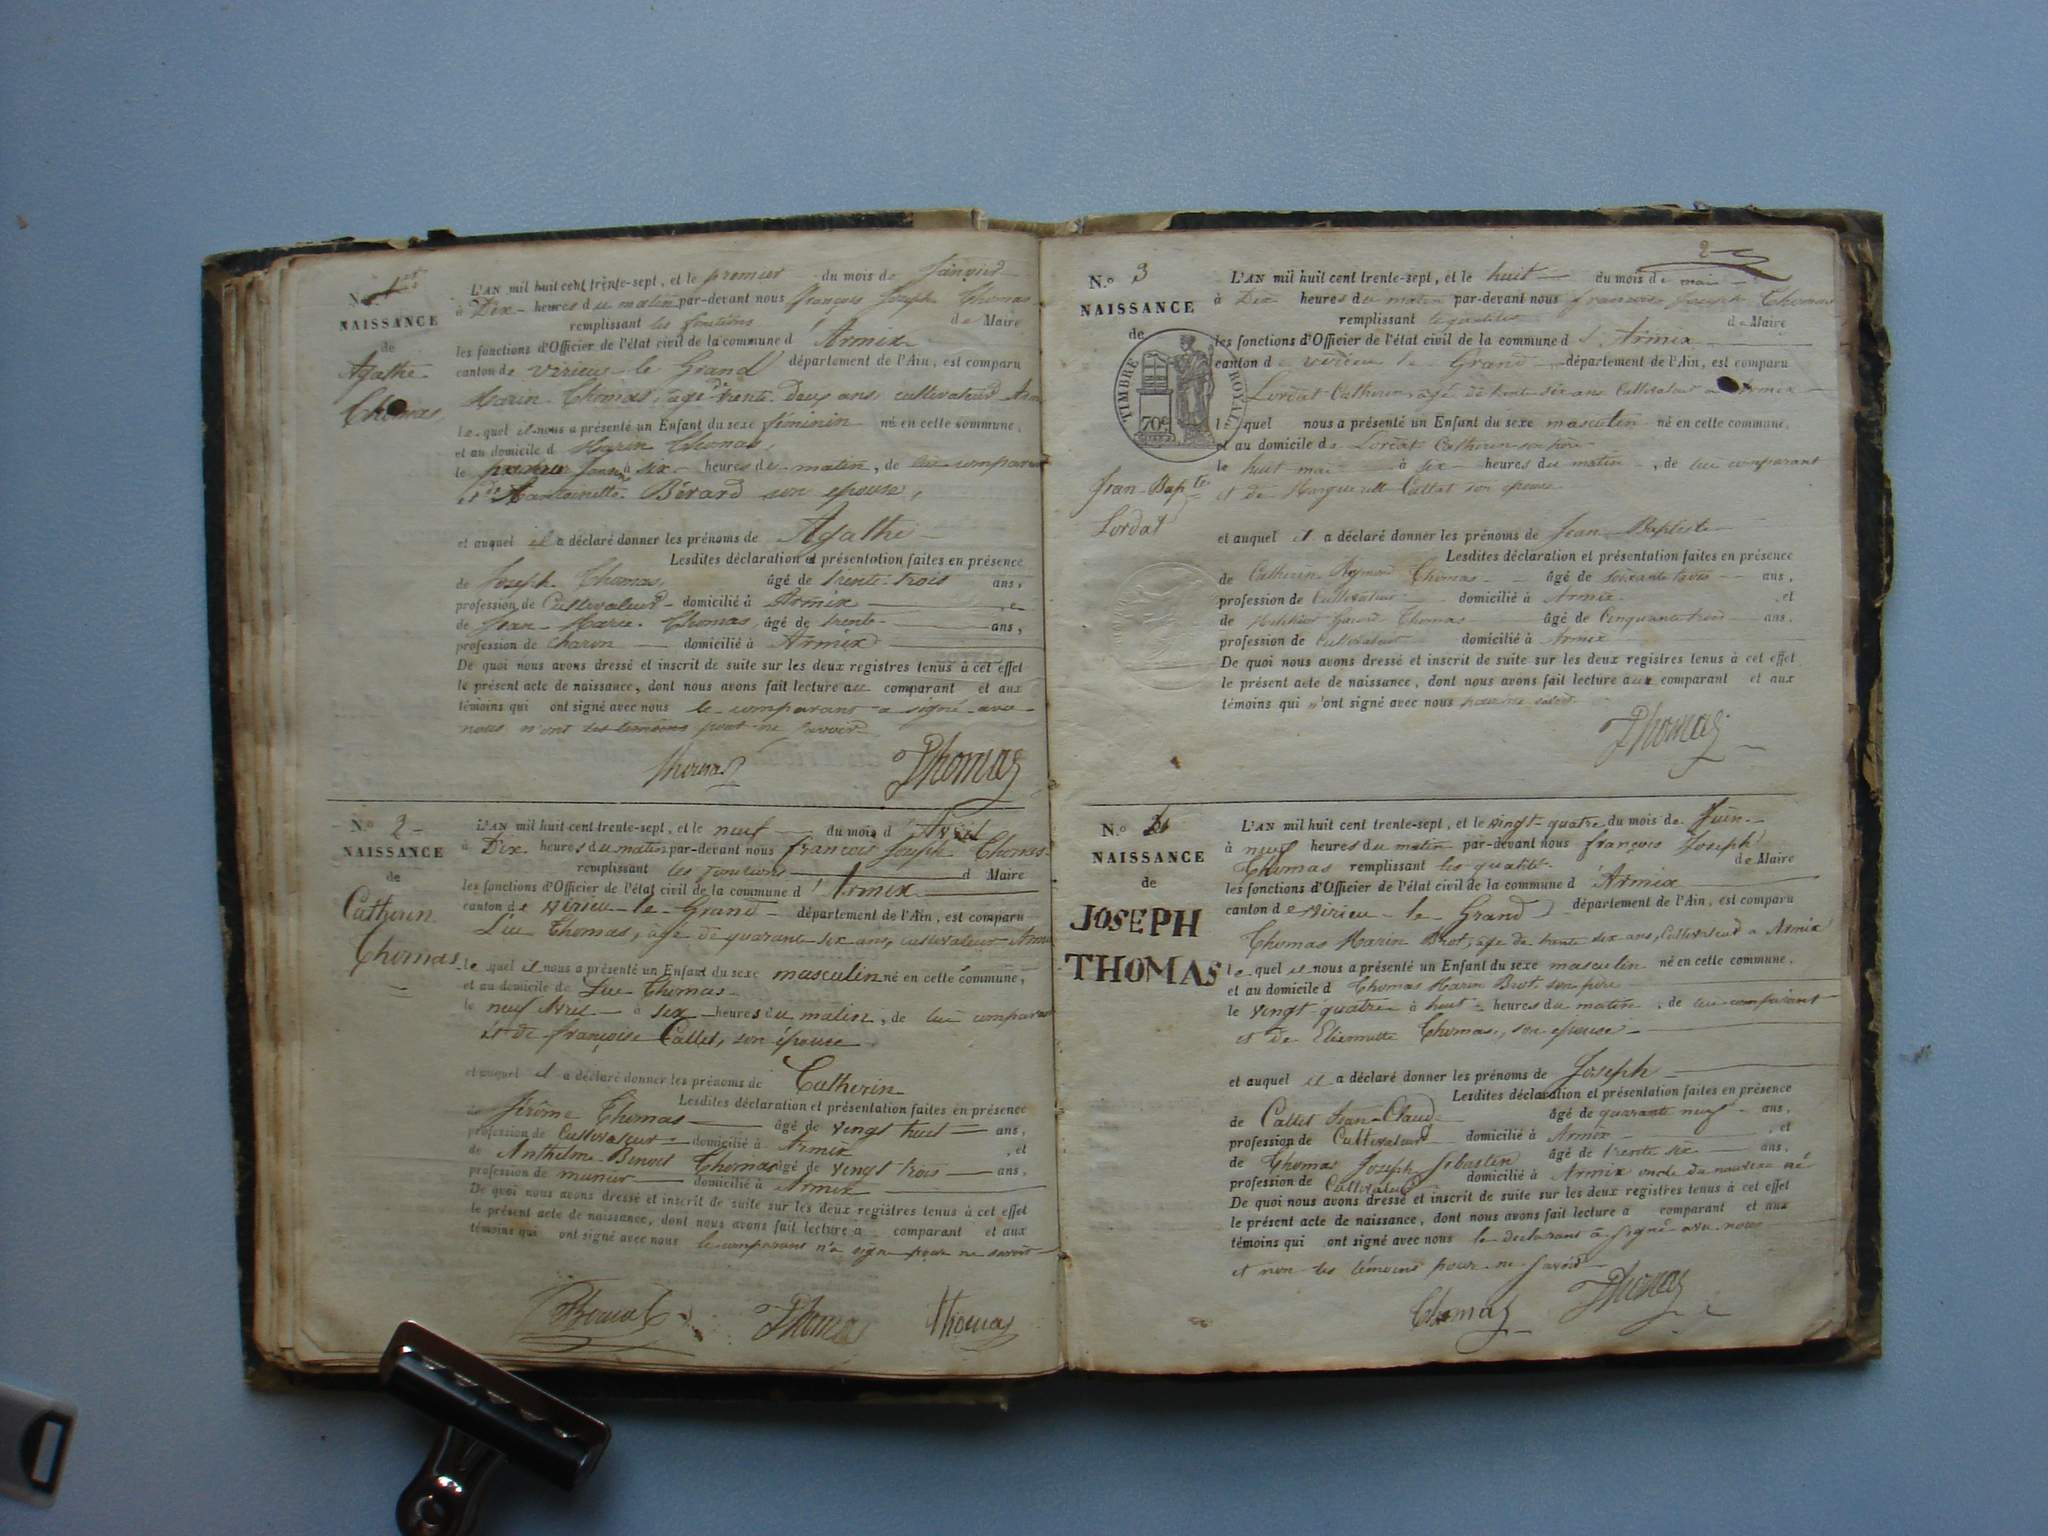 N.º 1er
NAISSANCE
de
Agathe
Thomas
L'AN mil huit cent trente-sept, et le premier du mois de Janvier
à Dix heures du matin par-devant nous françois Joseph Thomas
remplissant les fonctions de Maire
les fonctions d'Officier de l'état civil de la commune d'Armix
canton de virieu-le Grand département de l'Ain, est comparu
Marin Thomas, agé de trente deux ans, cultivateur
Lequel il nous a présenté un Enfant du sexe féminin né en cette commune,
et au domicile d Marin Thomas,
le premier à six heures du matin, de lui comparant
Antoinette Bérard son epouse,
et auquel il a déclaré donner les prénoms de Agathe
Lesdites déclaration et présentation faites en présence
de Joseph Thomas, âgé de trente-trois ans,
profession de Cultivateur domicilié à Armix, e
de Jean-Marie Thomas, âgé de trente ans,
profession de charon domicilié à Armix
De quoi nous avons dressé et inscrit de suite sur les deux registres tenus à cet effet
le présent acte de naissance, dont nous avons fait lecture au comparant et aux
témoins qui ont signé avec nous le comparant a signé avec
nous n'ont les témoins pour ne savoir
Thomas Thomas
N.º 2
NAISSANCE
de
Catherin
Thomas
L'AN mil huit cent trente-sept, et le neuf du mois d'Avril
à Dix heures du matin par-devant nous françois Joseph Thomas
remplissant les fonctions d Maire
les fonctions d'Officier de l'état civil de la commune d'Armix
canton de virieu-le-Grand département de l'Ain, est comparu
Luc Thomas, age de quarante six ans, cultivateur
lequel il nous a présenté un Enfant du sexe masculin né en cette commune,
et au domicile de Luc Thomas
le neuf Avril à six heures du matin, de lui comparant
et de françoise Callet, son épouse
et auquel il a déclaré donner les prénoms de Catherin
Lesdites déclaration et présentation faites en présence
de Jérôme Thomas âgé de vingt huit ans,
profession de Cultivateur domicilié à Armix, et
de Anthelme-Benoit Thomas âgé de vingt trois ans,
profession de domicilié à Armix
De quoi nous avons dressé et inscrit de suite sur les deux registres tenus à cet effet
le présent acte de naissance, dont nous avons fait lecture à comparant et aux
témoins qui ont signé avec nous le comparant n'a signé pour ne savoir
Thomas Thomas
2
N.º 3
NAISSANCE
de
TIMBRE ROYAL
70c
Jean-Bapte
Lordat
L'AN mil huit cent trente-sept, et le huit du mois de mai
à Dix heures du matin par-devant nous françois Joseph Thomas
remplissant de Maire
les fonctions d'Officier de l'état civil de la commune d'Armix
canton de virieu le Grand département de l'Ain, est comparu
Lordat Catherin agé de trente six ans Cultivateur a Armix
lequel nous a présenté un Enfant du sexe masculin né en cette commune,
et au domicile de Lordat Catherin son père
le huit mai à six heures du matin, de lui comparant
et de Marguerite Callet son epouse
et auquel il a déclaré donner les prénoms de Jean Baptiste
Lesdites déclaration et présentation faites en présence
de Catherin Thomas âgé de soixante trois ans,
profession de Cultivateur domicilié à Armix et
de Thomas âgé de Cinquante ans,
profession de Cultivateur domicilié à Armix
De quoi nous avons dressé et inscrit de suite sur les deux registres tenus à cet effet
le présent acte de naissance, dont nous avons fait lecture aux comparant et aux
témoins qui n'ont signé avec nous pour ne savoir
Thomas
N.º 4
NAISSANCE
de
JOSEPH
THOMAS
L'AN mil huit cent trente-sept, et le vingt-quatre du mois de Juin
à neuf heures du matin par-devant nous françois Joseph
Thomas remplissant les qualité de Maire
les fonctions d'Officier de l'état civil de la commune d'Armix
canton de virieu-le-Grand département de l'Ain, est comparu
Thomas Marin Brot, age de trente six ans, Cultivateur a Armix
lequel il nous a présenté un Enfant du sexe masculin né en cette commune,
et au domicile d Thomas Marin Brot son père
le vingt quatre à huit heures du matin, de lui comparant
et de Etiennette Thomas, son epouse
et auquel il a déclaré donner les prénoms de Joseph
Lesdites déclaration et présentation faites en présence
de Callet Jean-Claude âgé de quarante neuf ans,
profession de Cultivateur domicilié à Armix, et
de Thomas Joseph Sebastien âgé de trente six ans,
profession de Cultivateur domicilié à Armix oncle du nouveau né
De quoi nous avons dressé et inscrit de suite sur les deux registres tenus à cet effet
le présent acte de naissance, dont nous avons fait lecture a comparant et aux
témoins qui ont signé avec nous le declarant a signé avec nous
et non les témoins pour ne savoir
Thomas Thomas